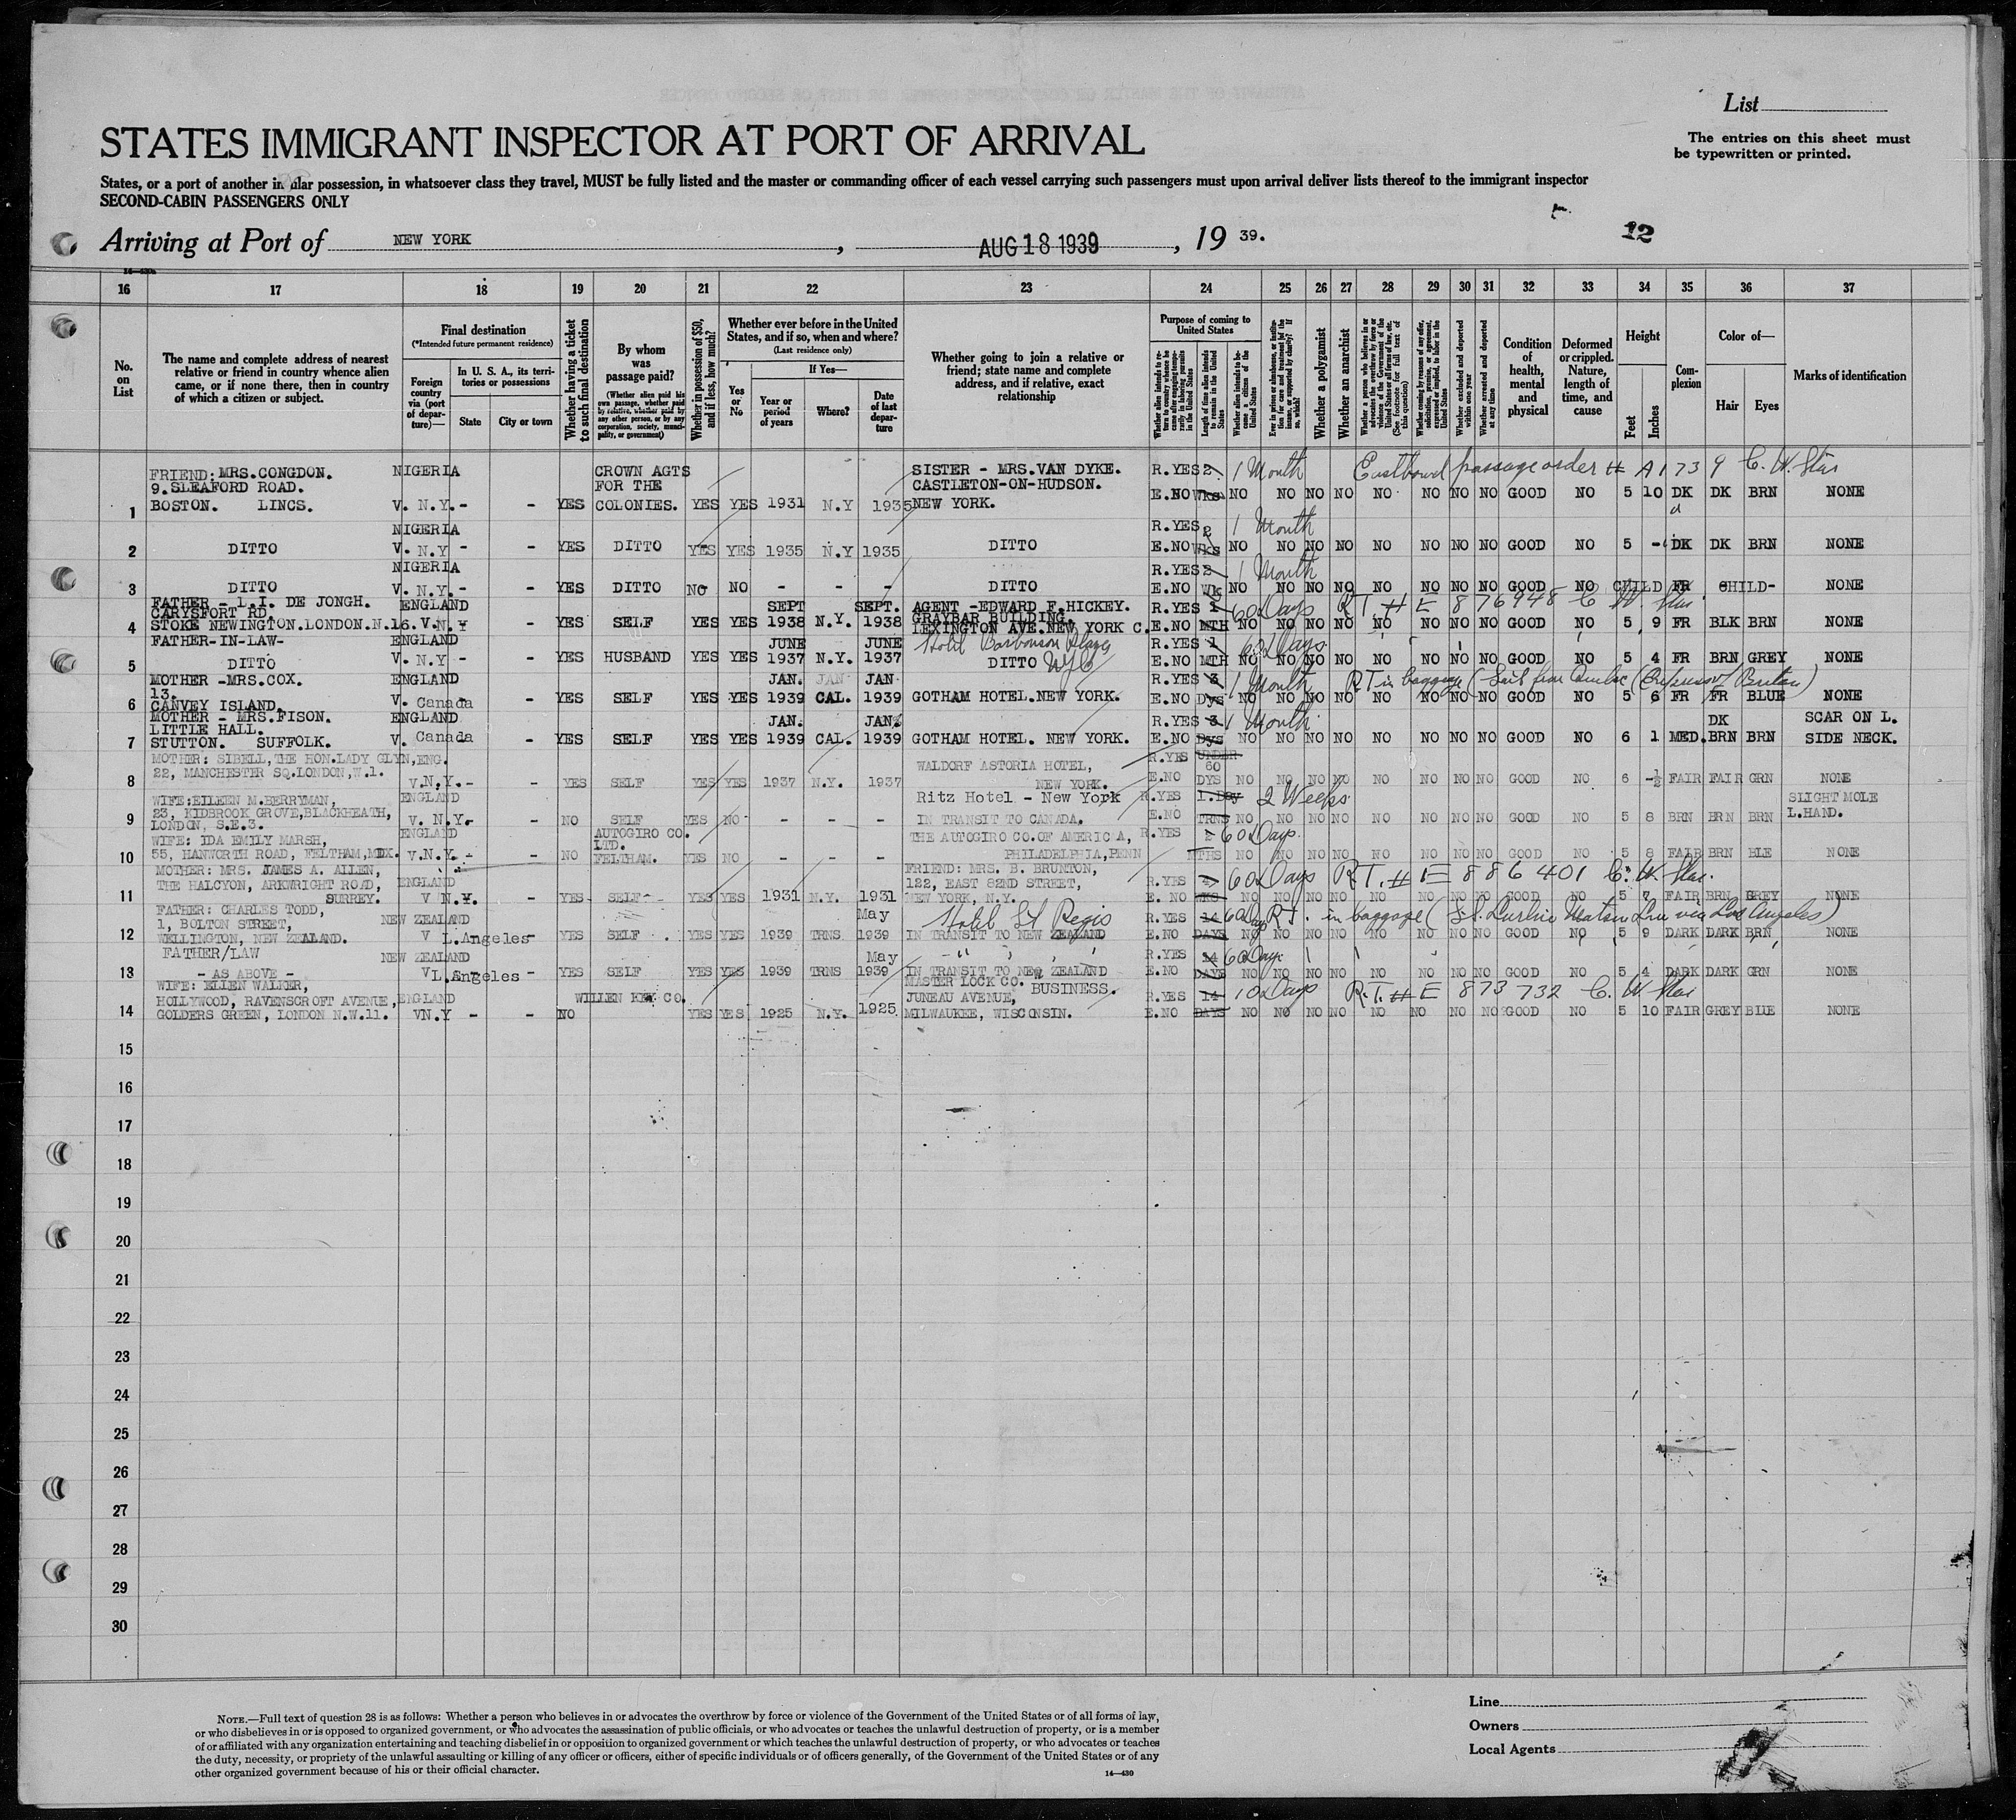 List
The entries on this sheet must
be typewritten or printed.
STATES IMMIGRANT INSPECTOR AT PORT OF ARRIVAL
States, or a port of another insular possession, in whatsoever class they travel, MUST be fully listed and the master or commanding officer of each vessel carrying such passengers must upon arrival deliver lists thereof to the immigrant inspector
SECOND-CABIN PASSENGERS ONLY
Arriving at Port of NEW YORK, AUG 18 1939, 19 39. 12
16 17 18 19 20 21 22 23 24 25 26 27 28 29 30 31 32 33 34 35 36 37
No. on List
The name and complete address of nearest relative or friend in country whence alien came, or if none there, then in country of which a citizen or subject.
Final destination
(*Intended future permanent residence)
Foreign country via (port of departure)—
In U. S. A., its territories or possessions
State
City or town
Whether having a ticket to such final destination
By whom was passage paid?
(Whether alien paid his own passage, whether paid by relative, whether paid by any other person, or by any corporation, society, municipality, or government)
Whether in possession of $50, and if less, how much?
Whether ever before in the United States, and if so, when and where?
(Last residence only)
Yes or No
If Yes—
Year or period of years
Where?
Date of last departure
Whether going to join a relative or friend; state name and complete address, and if relative, exact relationship
Purpose of coming to United States
Length of time alien intends to remain in the United States
Whether alien intends to become a citizen of the United States
Whether a polygamist
Whether an anarchist
Whether excluded and deported within one year
Whether arrested and deported at any time
Condition of health, mental and physical
Deformed or crippled. Nature, length of time, and cause
Height
Feet
Inches
Complexion
Color of—
Hair
Eyes
Marks of identification
FRIEND: MRS.CONGDON. NIGERIA CROWN AGTS SISTER - MRS.VAN DYKE. R.YES 2 1 Month Eastbound passage order # A1739 C. W. Star
9.SLEAFORD ROAD. FOR THE CASTLETON-ON-HUDSON. E.NO Wks NO NO NO NO NO NO NO NO GOOD NO 5 10 DK DK BRN NONE
1 BOSTON. LINCS. V. N.Y.- - YES COLONIES. YES YES 1931 N.Y 1935 NEW YORK.
NIGERIA R.YES 2 1 Month
2 DITTO V. N.Y - - YES DITTO YES YES 1935 N.Y 1935 DITTO E.NO Wks NO NO NO NO NO NO NO NO GOOD NO 5 - DK DK BRN NONE
NIGERIA R.YES 2 1 Month
3 DITTO V. N.Y.- - YES DITTO NO NO - - - DITTO E.NO Wk NO NO NO NO NO NO NO NO GOOD NO CHILD FR CHILD- NONE
FATHER - L.I. DE JONGH. ENGLAND SEPT SEPT. AGENT -EDWARD F.HICKEY. R.YES 1 60 Days R.T. # E 876948 C. W. Star
CARYSFORT RD. GRAYBAR BUILDING.
4 STOKE NEWINGTON.LONDON.N.16. V.N.Y - YES SELF YES YES 1938 N.Y. 1938 LEXINGTON AVE.NEW YORK C. E.NO MTH NO NO NO NO NO NO NO NO GOOD NO 5 9 FR BLK BRN NONE
FATHER-IN-LAW- ENGLAND JUNE JUNE Hotel Barbizon Plaza R.YES 1 60 Days
5 DITTO V. N.Y - - YES HUSBAND YES YES 1937 N.Y. 1937 DITTO NYC E.NO MTH NO NO NO NO NO NO NO NO GOOD NO 5 4 FR BRN GREY NONE
MOTHER -MRS.COX. ENGLAND JAN. JAN JAN R.YES 3 1 Month R.T in baggage
13.
6 CANVEY ISLAND. V. Canada - YES SELF YES YES 1939 CAL. 1939 GOTHAM HOTEL.NEW YORK. E.NO Dys NO NO NO NO NO NO NO NO GOOD NO 5 6 FR FR BLUE NONE
MOTHER - MRS.FISON. ENGLAND JAN. JAN. R.YES 3 1 Month DK SCAR ON L.
LITTLE HALL.
7 STUTTON. SUFFOLK. V. Canada - YES SELF YES YES 1939 CAL. 1939 GOTHAM HOTEL. NEW YORK. E.NO Dys NO NO NO NO NO NO NO NO GOOD NO 6 1 MED. BRN BRN SIDE NECK.
MOTHER: SIBELL,THE HON.LADY GLYN, ENG. WALDORF ASTORIA HOTEL, R.YES UNDER
22, MANCHESTER SQ.LONDON,W.1. 60
8 V.N.Y.- - YES SELF YES YES 1937 N.Y. 1937 NEW YORK. E.NO DYS NO NO NO NO NO NO NO NO GOOD NO 6 -½ FAIR FAIR GRN NONE
WIFE:EILEEN M.BERRYMAN, ENGLAND Ritz Hotel - New York R.YES 1.Day 2 Weeks SLIGHT MOLE
23, KIDBROOK GROVE,BLACKHEATH, L.HAND.
9 LONDON, S.E.3. V. N.Y.- - NO SELF YES NO - - - IN TRANSIT TO CANADA. E.NO TRNS NO NO NO NO NO NO NO NO GOOD NO 5 8 BRN BRN BRN
WIFE: IDA EMILY MARSH, ENGLAND AUTOGIRO CO. LTD. THE AUTOGIRO CO.OF AMERICA, R.YES 2 60 Days
10 55, HANWORTH ROAD, FELTHAM,MDX. V.N.Y.- - NO FELTHAM. YES NO - - - PHILADELPHIA,PENN MTHS NO NO NO NO NO NO NO NO GOOD NO 5 8 FAIR BRN BLE NONE
MOTHER: MRS. JAMES A. ALLEN, FRIEND: MRS. B. BRUNTON,
THE HALCYON, ARKWRIGHT ROAD, ENGLAND 122, EAST 82ND STREET, R.YES 60 Days R.T. # E 886401 C. W. Star.
11 SURREY. V N.Y. - YES SELF- YES YES 1931 N.Y. 1931 NEW YORK, N.Y. E. NO WKS NO NO NO NO NO NO NO NO GOOD NO 5 7 FAIR BRN GREY NONE
FATHER: CHARLES TODD, May Hotel St Regis
1, BOLTON STREET, NEW ZEALAND R.YES 14 60 Days R.T. in baggage (S.S. Lurline Matson Line via Los Angeles)
12 WELLINGTON, NEW ZEALAND. V L.Angeles- - YES SELF YES YES 1939 TRNS 1939 IN TRANSIT TO NEW ZEALAND E.NO DAYS NO NO NO NO NO NO NO NO GOOD NO 5 9 DARK DARK BRN NONE
FATHER/LAW NEW ZEALAND May R.YES 14 60 Days
13 - AS ABOVE - V L.Angeles - YES SELF YES YES 1939 TRNS 1939 IN TRANSIT TO NEW ZEALAND E.NO DAYS NO NO NO NO NO NO NO NO GOOD NO 5 4 DARK DARK GRN NONE
WIFE: ELLEN WALKER, MASTER LOCK CO. BUSINESS.
HOLLYWOOD, RAVENSCROFT AVENUE, ENGLAND WILLEN KEY CO. JUNEAU AVENUE, R.YES 14 10 Days R.T. # E 873732 C. W. Star
14 GOLDERS GREEN, LONDON N.W.11. VN.Y - - NO YES YES 1925 N.Y. 1925 MILWAUKEE, WISCONSIN. E.NO DAYS NO NO NO NO NO NO NO NO GOOD NO 5 10 FAIR GREY BLUE NONE
15
16
17
18
19
20
21
22
23
24
25
26
27
28
29
30
NOTE.—Full text of question 28 is as follows: Whether a person who believes in or advocates the overthrow by force or violence of the Government of the United States or of all forms of law,
or who disbelieves in or is opposed to organized government, or who advocates the assassination of public officials, or who advocates or teaches the unlawful destruction of property, or is a member
of or affiliated with any organization entertaining and teaching disbelief in or opposition to organized government or which teaches the unlawful destruction of property, or who advocates or teaches
the duty, necessity, or propriety of the unlawful assaulting or killing of any officer or officers, either of specific individuals or of officers generally, of the Government of the United States or of any
other organized government because of his or their official character.
14—430
Line
Owners
Local Agents